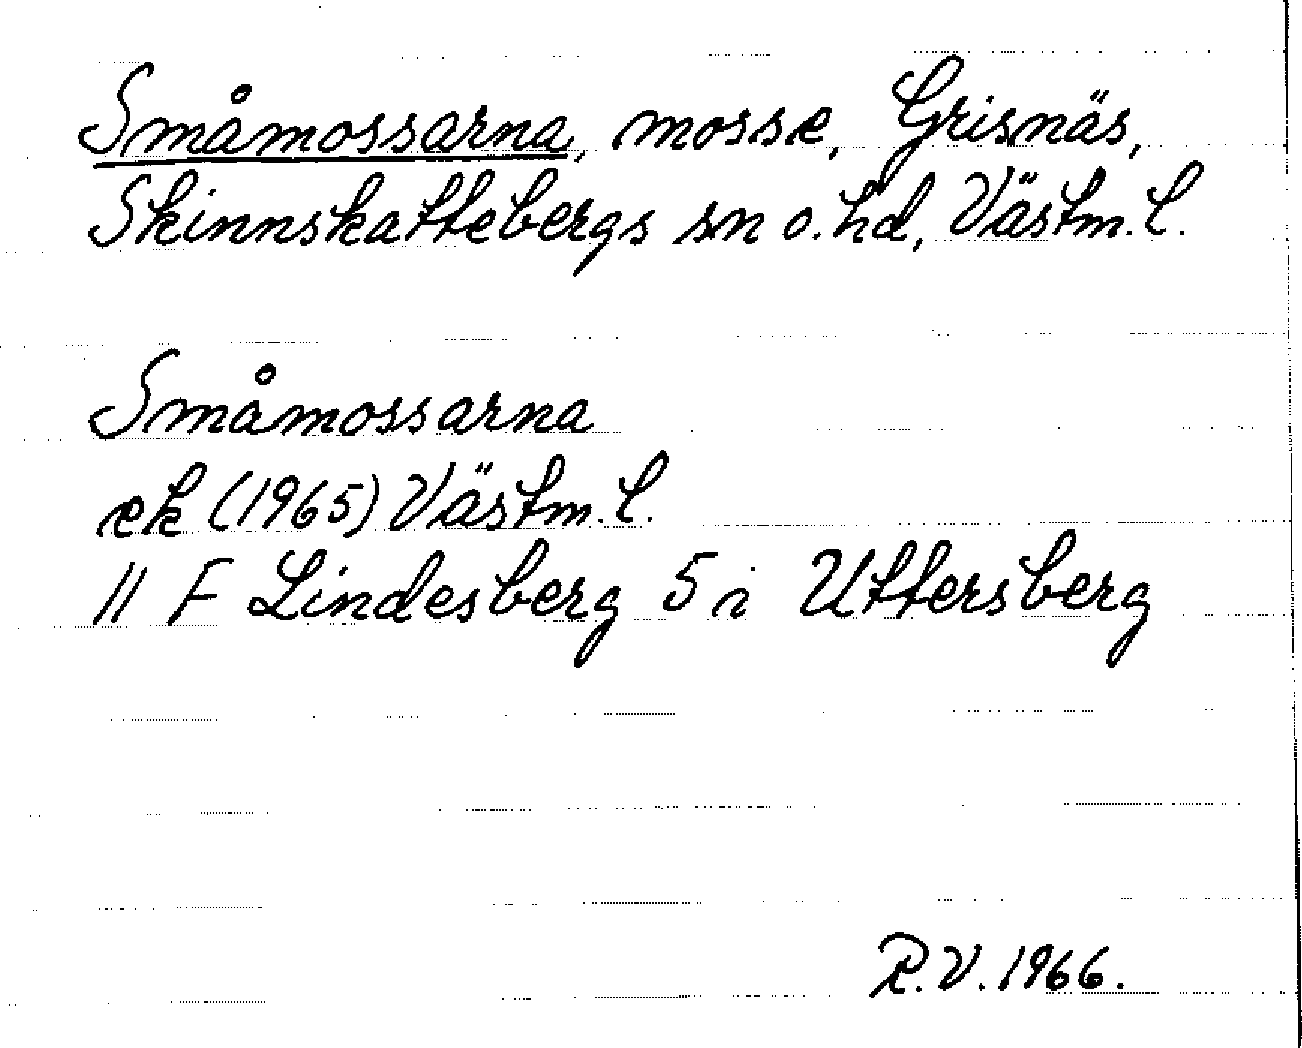 Småmossarna, mosse, Grisnäs,
Skinnskattebergs sn o. hd, Västm. l.
Småmossarna
ek (1965) Västm. l.
11 F Lindesberg 5 i Uttersberg
R.V. 1966.